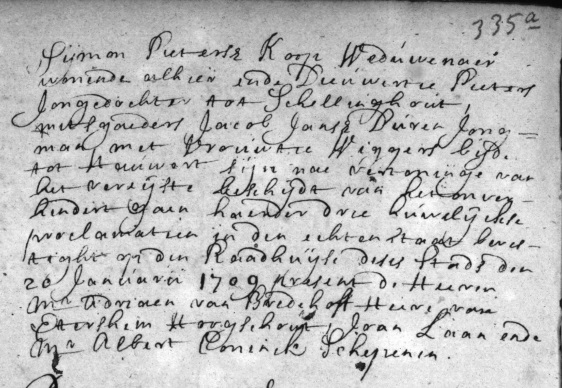 335a
Sijmon Pietersz Koop Weduwenaer
wonende alhier ende Dieuwertie Pieters
Jongedochter tot Schellinghout,
mitsgaeders Jacob Jansz Duren Jong=
man met Trouwtie Wiggers beijde
tot Hauwert sijn nae vertoninge van
het vereijste bescheijdt van het onver-
hindert gaen haerder drie huwelijckse
proclamatien in den echten staat beves-
tight op den Raadhuijse deses Stads den
20 Januarij 1709 present de Heeren
Mr Adriaen van Bredehoff Heere van
Etershem Hoogschout, Joan Laan ende
Mr Albert Coninck Schepenen.